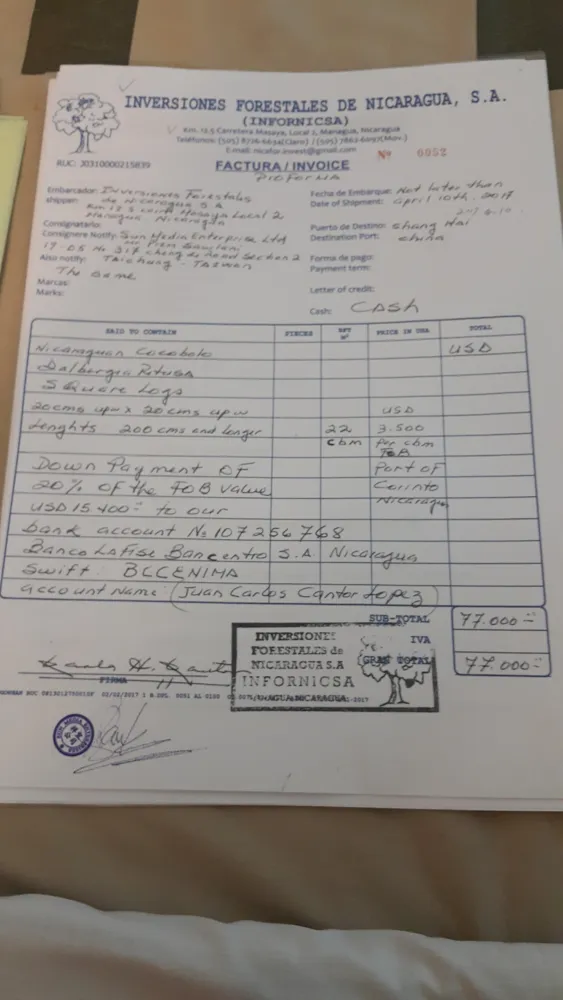 INVERSIONES FORESTALES DE NICARAGUA, S.A.
(INFORNICSA)
Km. 12.5 Carretera Masaya, Local 2, Managua, Nicaragua
E-mail: nicafor.invest@gmail.com
Nº 0052
RUC: J0310000215839
FACTURA / INVOICE
Proforma
Embarcador: Inversiones Forestales
shipper: de Nicaragua S A
Km. 12.5 Masaya Local 2
Managua Nicaragua
Fecha de Embarque: Not later than
Date of Shipment: april 10th. 2017
Puerto de Destino: Shang Hai
Destination Port: China
Consignatario:
Consignere Notify: Sun Media Enterprise Ltd
17-05 No 317 Chong de Road Section 2
Also notify: Taichung - Taiwan
The Same
Forma de pago:
Payment term:
Marcas:
Marks:
Letter of credit:
Cash: CASH
SAID TO CONTAIN PIECES PRICE IN USA TOTAL
Nicaraguan Cocobolo USD
Dalbergia Retusa
Square Logs
20cms up w x 20 cms up w USD
Lenghts 200 cms and longer 22 3.500
cbm per cbm
FOB
Down Payment OF Port of
20% of the FOB value Corinto
Nicaragua
USD 15.400 = to our
bank account No 107256768
Banco Lafise Bancentro S.A. Nicaragua
Swift: BCCENIMA
account name (Juan Carlos Cantor Lopez)
SUB-TOTAL 77.000 =
IVA
GRAN TOTAL 77.000 =
FIRMA
INVERSIONES
FORESTALES de
NICARAGUA S.A
INFORNICSA
MANAGUA, NICARAGUA